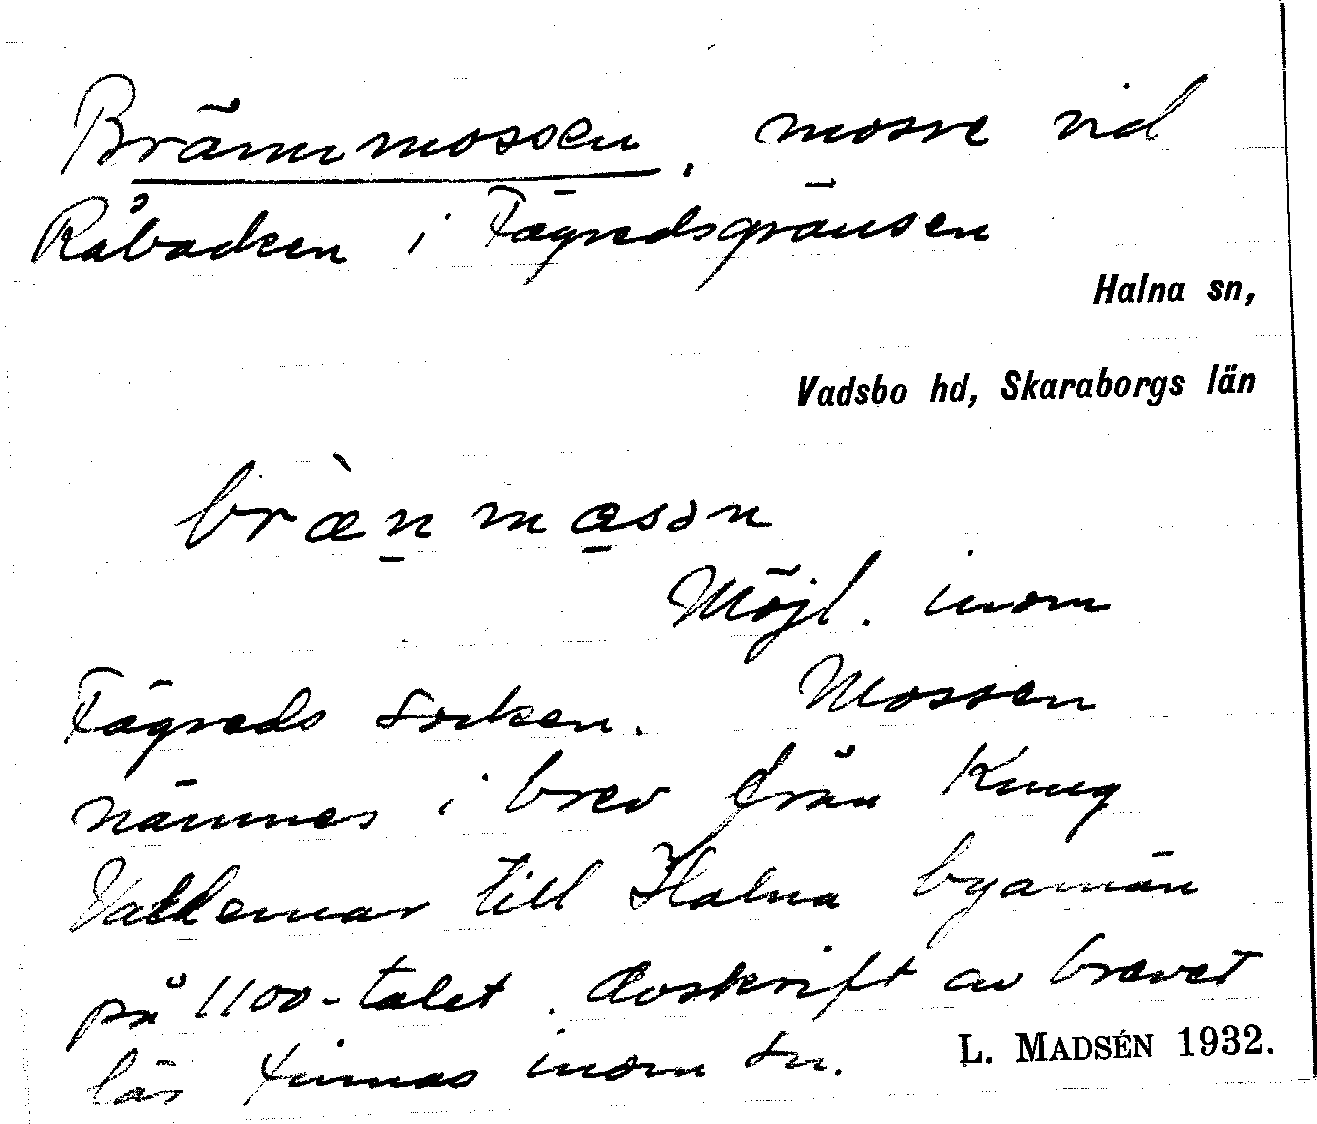 Brännmossen, mosse vid
Råbacken i Fägredsgränsen
Halna sn,
Vadsbo hd, Skaraborgs län
bræ̀n mαsən
Möjl. inom
Fägreds socken. Mossen
nämnes i brev från Kung
Valdemar till Halna byamän
på 1100-talet. Avskrift av brevet
lär finnas inom sn.
L. MADSÉN 1932.